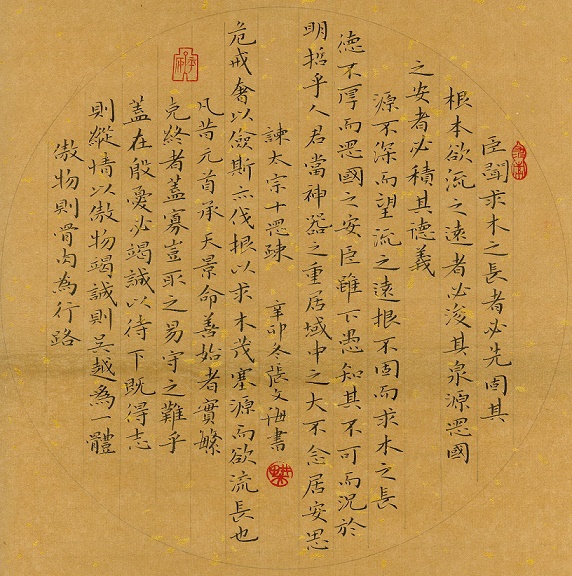 臣聞求木之長者必先固其
根本欲流之遠者必浚其泉源思國
之安者必積其德義
源不深而望流之遠根不固而求木之長
德不厚而思國之安臣雖下愚知其不可而況於
明哲乎人君當神器之重居域中之大不念居安思
諫太宗十思疎 辛卯冬張文海書
危戒奢以儉斯亦伐根以求木茂塞源而欲流長也
凡昔元首承天景命善始者實繁
克終者蓋寡豈取之易守之難乎
蓋在殷憂必竭誠以待下既得志
則縱情以傲物竭誠則吳越為一體
傲物則骨肉為行路